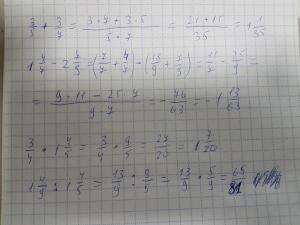 3/5 + 3/7 = (3·7+3·5)/(5·7) = (21+15)/35 = 1 1/35
1 4/7 - 2 7/9 = (7/7 + 4/7) - (18/9 + 7/9) = 11/7 - 25/9 =
= (9·11 - 25·7)/(9·7) = - 76/63 = -1 13/63
3/4 · 1 4/5 = 3/4 · 9/5 = 27/20 = 1 7/20
1 4/9 : 1 4/5 = 13/9 : 9/5 = 13/9 · 5/9 = 65/81